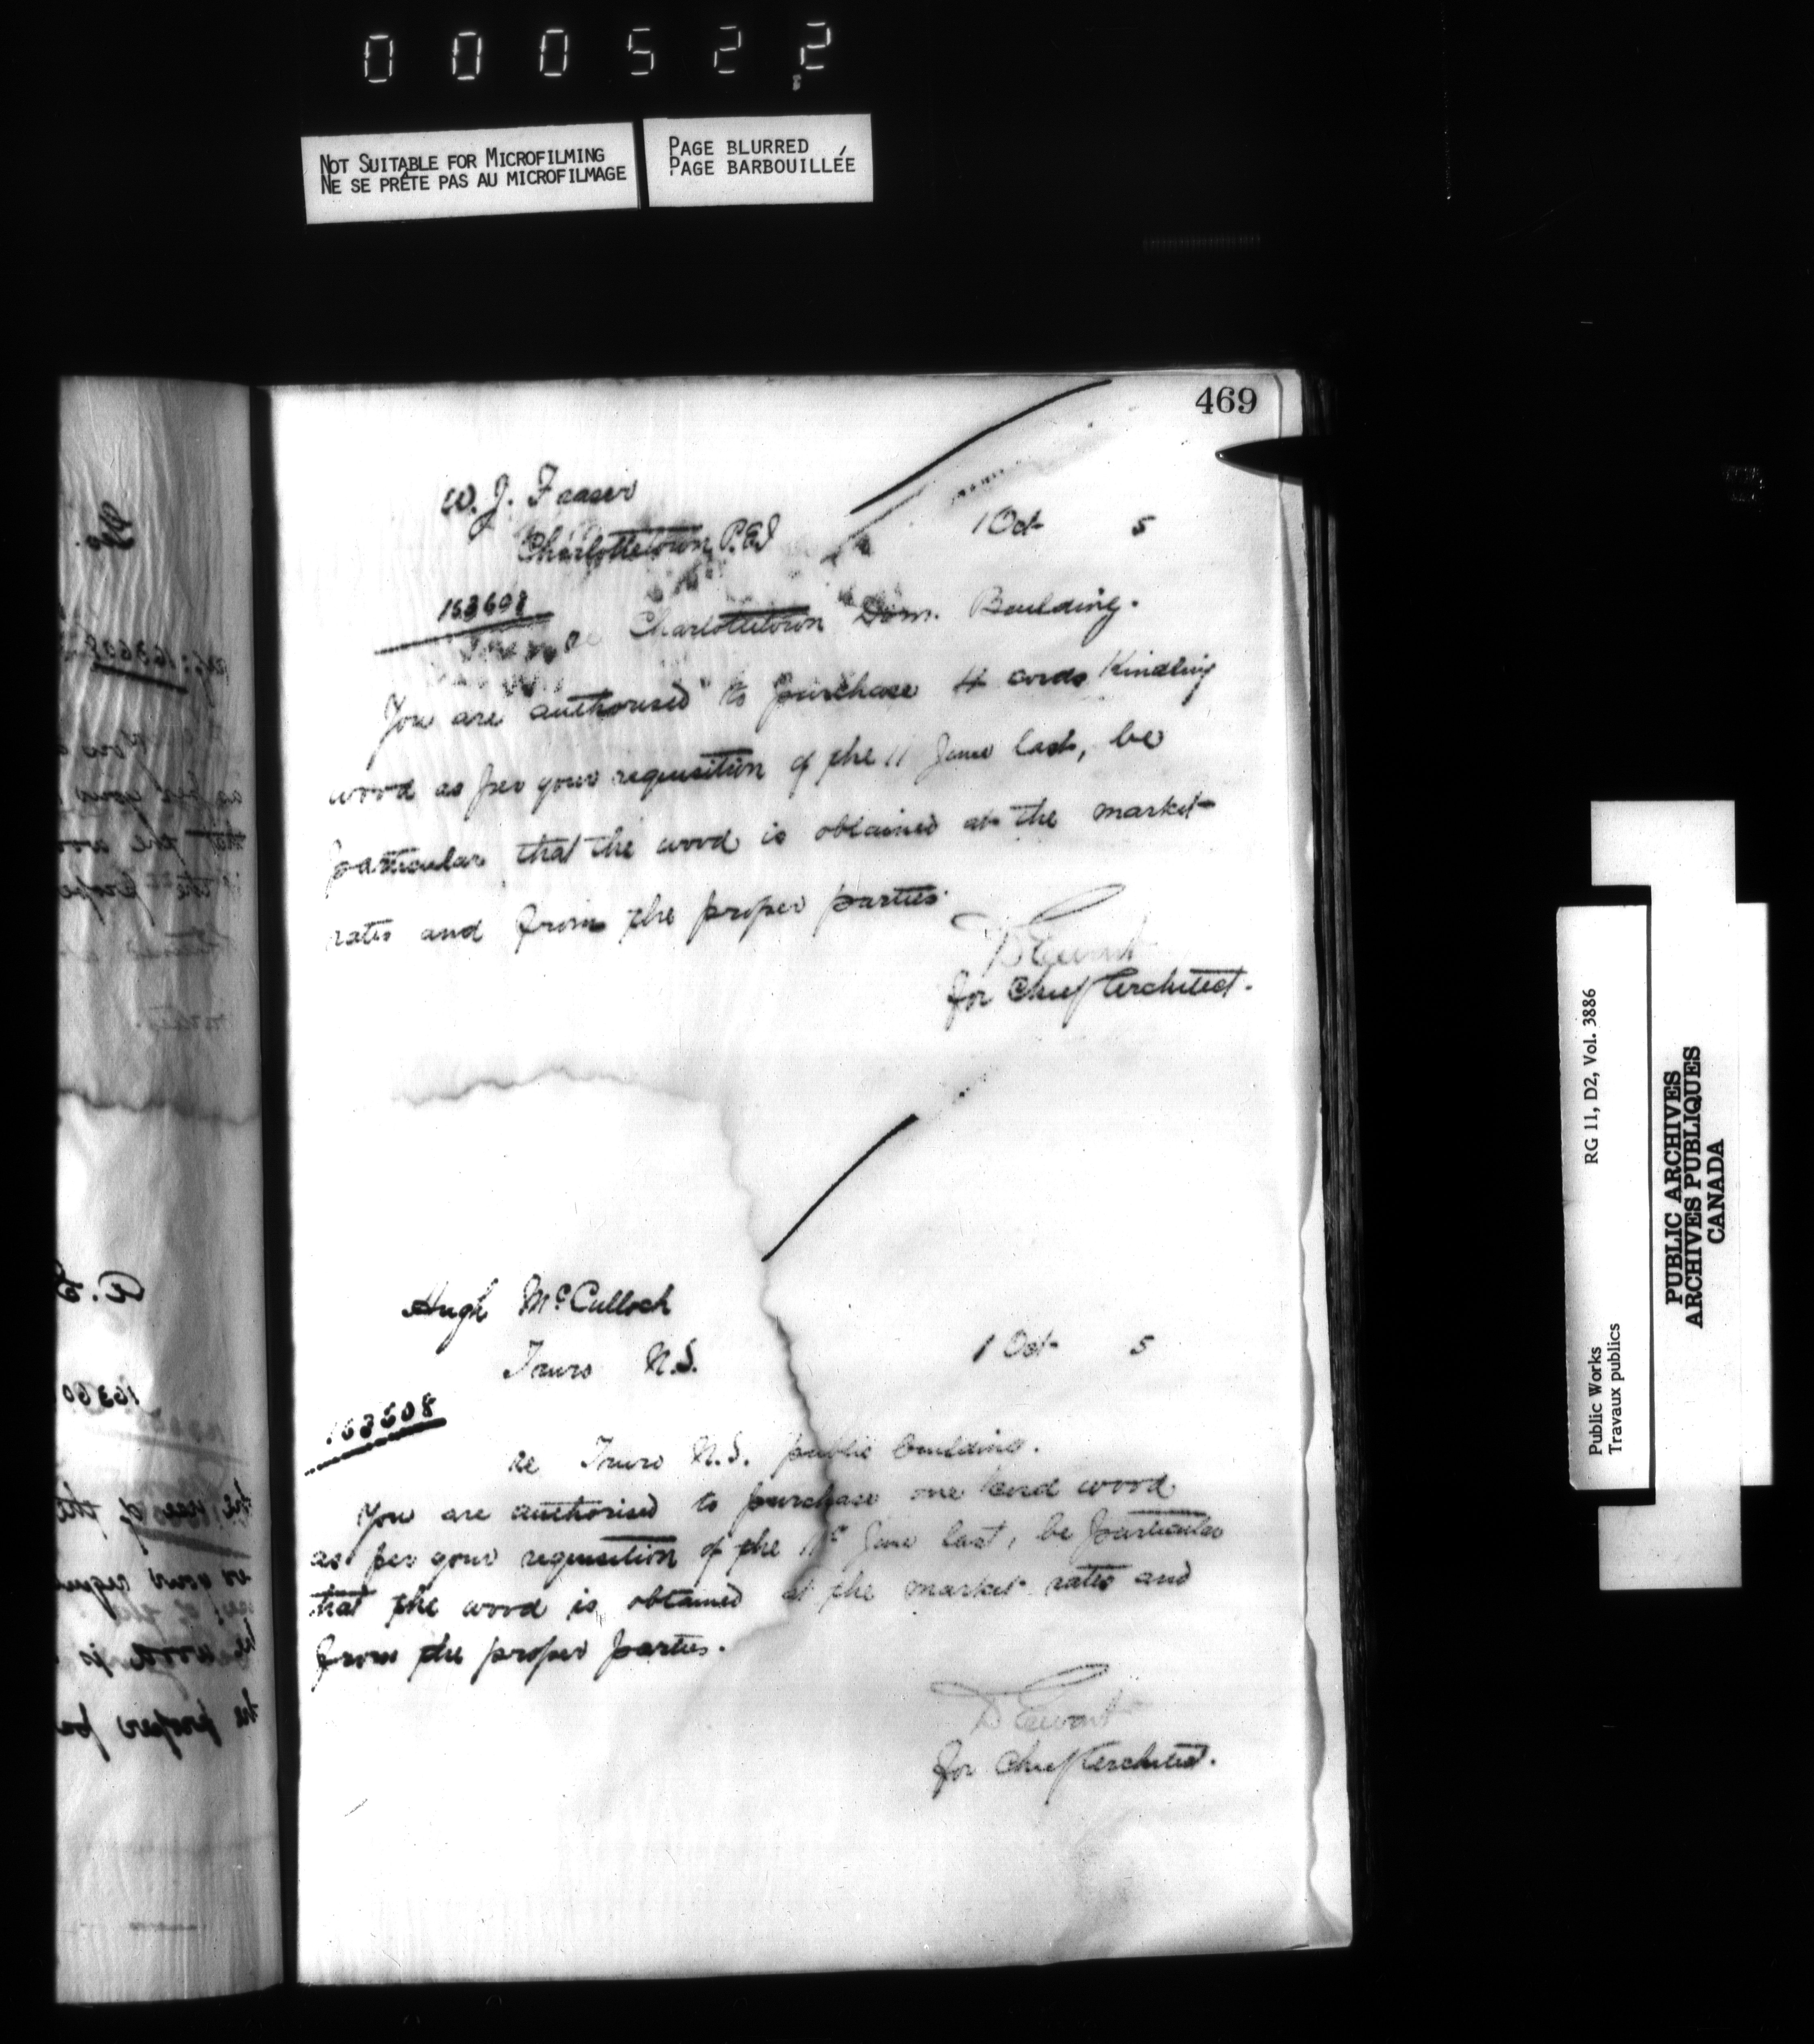 000522
NOT SUITABLE FOR MICROFILMING
NE SE PRÊTE PAS AU MICROFILMAGE
PAGE BLURRED
PAGE BARBOUILLÉE
469
W. J. Fraser
Charlottetown, P.E.I
1 Oct 5
153608
re Charlottetown Dom. Building.
You are authorised to purchase 4 cords Kindling
wood as per your requisition of the 11 June last, be
particular that the wood is obtained at the market
rates and from the proper parties.
D Ewart
for Chief Architect.
Hugh McCulloch
Truro N.S.
1 Oct 5
153608
re Truro N.S. public building.
You are authorised to purchase one cord wood
as per your requisition of the June last, be particular
that the wood is obtained at the market rates and
from the proper parties.
D Ewart
for Chief Architect.
Public Works
Travaux publics
RG 11, D2, Vol. 3886
PUBLIC ARCHIVES
ARCHIVES PUBLIQUES
CANADA